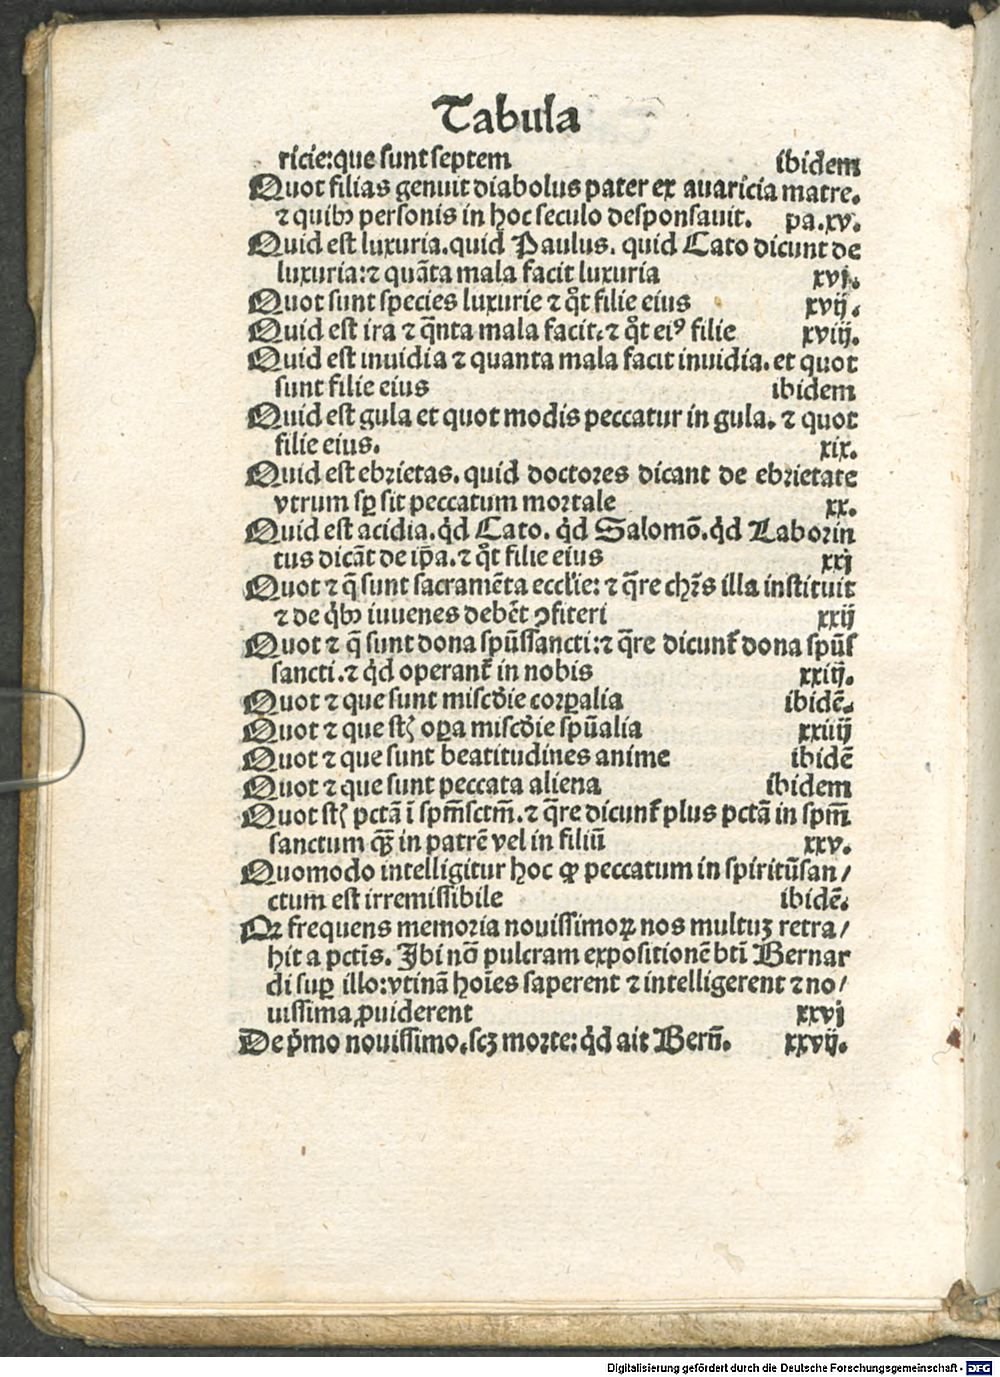 Tabula
ricie:que sunt septem ibidem
Quot filias genuit diabolus pater ex auaricia matre.
⁊ quibꝫ personis in hoc seculo desponsauit. pa.xv.
Quid est luxuria.quid Paulus. quid Cato dicunt de
luxuria:⁊ quãta mala facit luxuria xvj.
Quot sunt species luxurie ⁊ qͦt filie eius xvij.
Quid est ira ⁊ q̃nta mala facit:⁊ qͦt eiꝰ filie xviij.
Quid est inuidia ⁊ quanta mala facit inuidia. et quot
sunt filie eius ibidem
Quid est gula et quot modis peccatur in gula. ⁊ quot
filie eius. xix.
Quid est ebrietas. quid doctores dicant de ebrietate
vtrum sꝑ sit peccatum mortale xx.
Quid est acidia.qͥd Cato. qͥd Salomõ.qͥd Laborin
tus dicãt de ip̃a.⁊ qͦt filie eius xxj
Quot ⁊ q̃ sunt sacramẽta eccl̃ie: ⁊ q̃re chr̃s illa instituit
⁊ de qͥbꝫ iuuenes debẽt ꝯfiteri xxij
Quot ⁊ q̃ sunt dona spũssancti:⁊ q̃re dicunt᷑ dona spũs
sancti.⁊ qͥd operant᷑ in nobis xxiij.
Quot ⁊ que sunt misc̃die corꝑalia ibidẽ.
Quot ⁊ que st̃ oꝑa misc̃die spũalia xxiiij
Quot ⁊ que sunt beatitudines anime ibidẽ
Quot ⁊ que sunt peccata aliena ibidem
Quot st̃ pctã ĩ spm̃sctm̃.⁊ q̃re dicunt᷑ plus pctã in spm̃
sanctum qꝫ̃ in patrẽ vel in filiũ xxv.
Quomodo intelligitur hoc ꝙ peccatum in spiritũsan/
ctum est irremissibile ibidẽ.
Qꝛ frequens memoria nouissimoꝝ nos multuꝫ retra/
hit a pctĩs. Ibi nõ pulcram expositionẽ btĩ Bernar
di suꝑ illo:vtinã hoĩes saperent ⁊ intelligerent ⁊ no/
uissima ꝓuiderent xxvj
De pͥmo nouissimo.scꝫ morte: qͥd ait Berñ. xxvij.
Digitalisierung gefördert durch die Deutsche Forschungsgemeinschaft - DFG